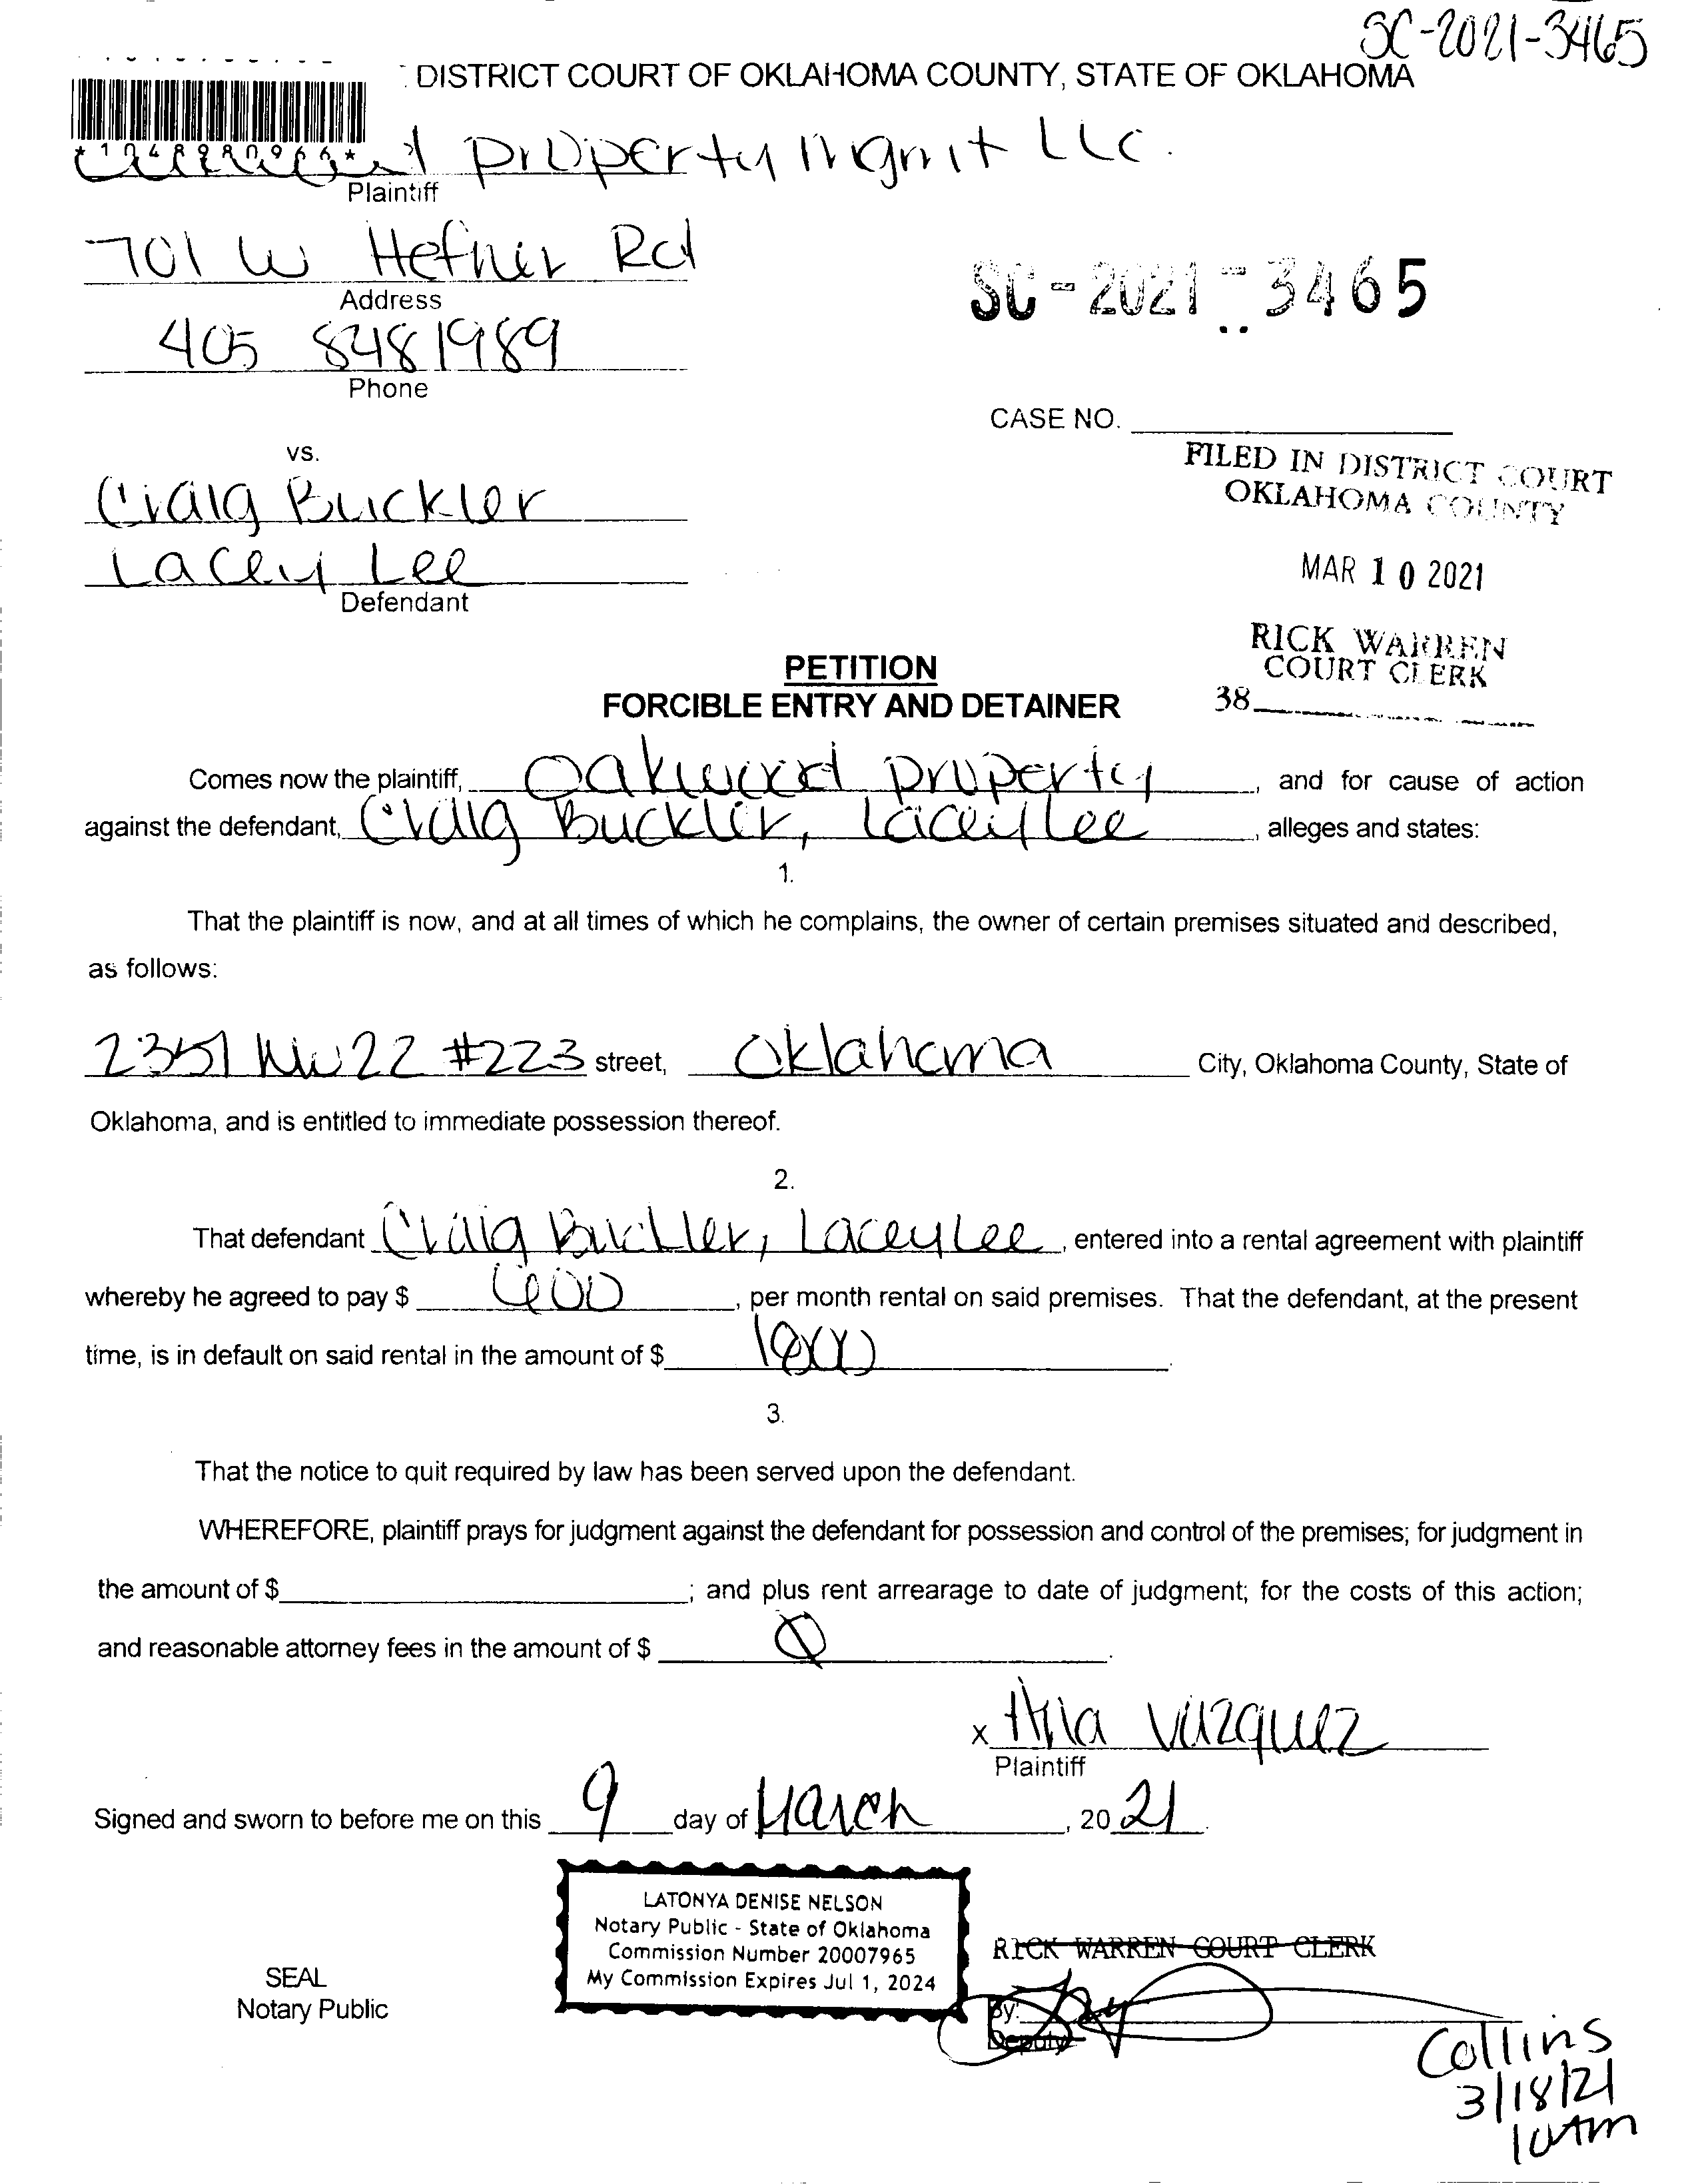 SC-2021-3465
DISTRICT COURT OF OKLAHOMA COUNTY, STATE OF OKLAHOMA
Property Mgmt LLC.
Plaintiff
701 W Hefner Rd
Address
405 848 1989
Phone
SC-2021-3465
CASE NO.
vs.
FILED IN DISTRICT COURT
OKLAHOMA COUNTY
Craig Buckler
Lacey Lee
Defendant
MAR 10 2021
RICK WARREN
COURT CLERK
38
PETITION
FORCIBLE ENTRY AND DETAINER
Comes now the plaintiff, Oakwood property, and for cause of action
against the defendant, Craig Buckler, Lacey Lee, alleges and states:
1.
That the plaintiff is now, and at all times of which he complains, the owner of certain premises situated and described,
as follows:
2351 NW 22 #223 street, Oklahoma City, Oklahoma County, State of
Oklahoma, and is entitled to immediate possession thereof.
2.
That defendant Craig Buckler, Lacey Lee, entered into a rental agreement with plaintiff
whereby he agreed to pay $ 600, per month rental on said premises. That the defendant, at the present
time, is in default on said rental in the amount of $ 1800.
3.
That the notice to quit required by law has been served upon the defendant.
WHEREFORE, plaintiff prays for judgment against the defendant for possession and control of the premises; for judgment in
the amount of $; and plus rent arrearage to date of judgment; for the costs of this action;
and reasonable attorney fees in the amount of $ 0.
x Vazquez
Plaintiff
Signed and sworn to before me on this 9 day of March, 20 21.
LATONYA DENISE NELSON
Notary Public - State of Oklahoma
Commission Number 20007965
My Commission Expires Jul 1, 2024
RICK WARREN COURT CLERK
SEAL
Notary Public
By:
Deputy
Collins
3/18/21
10 Am